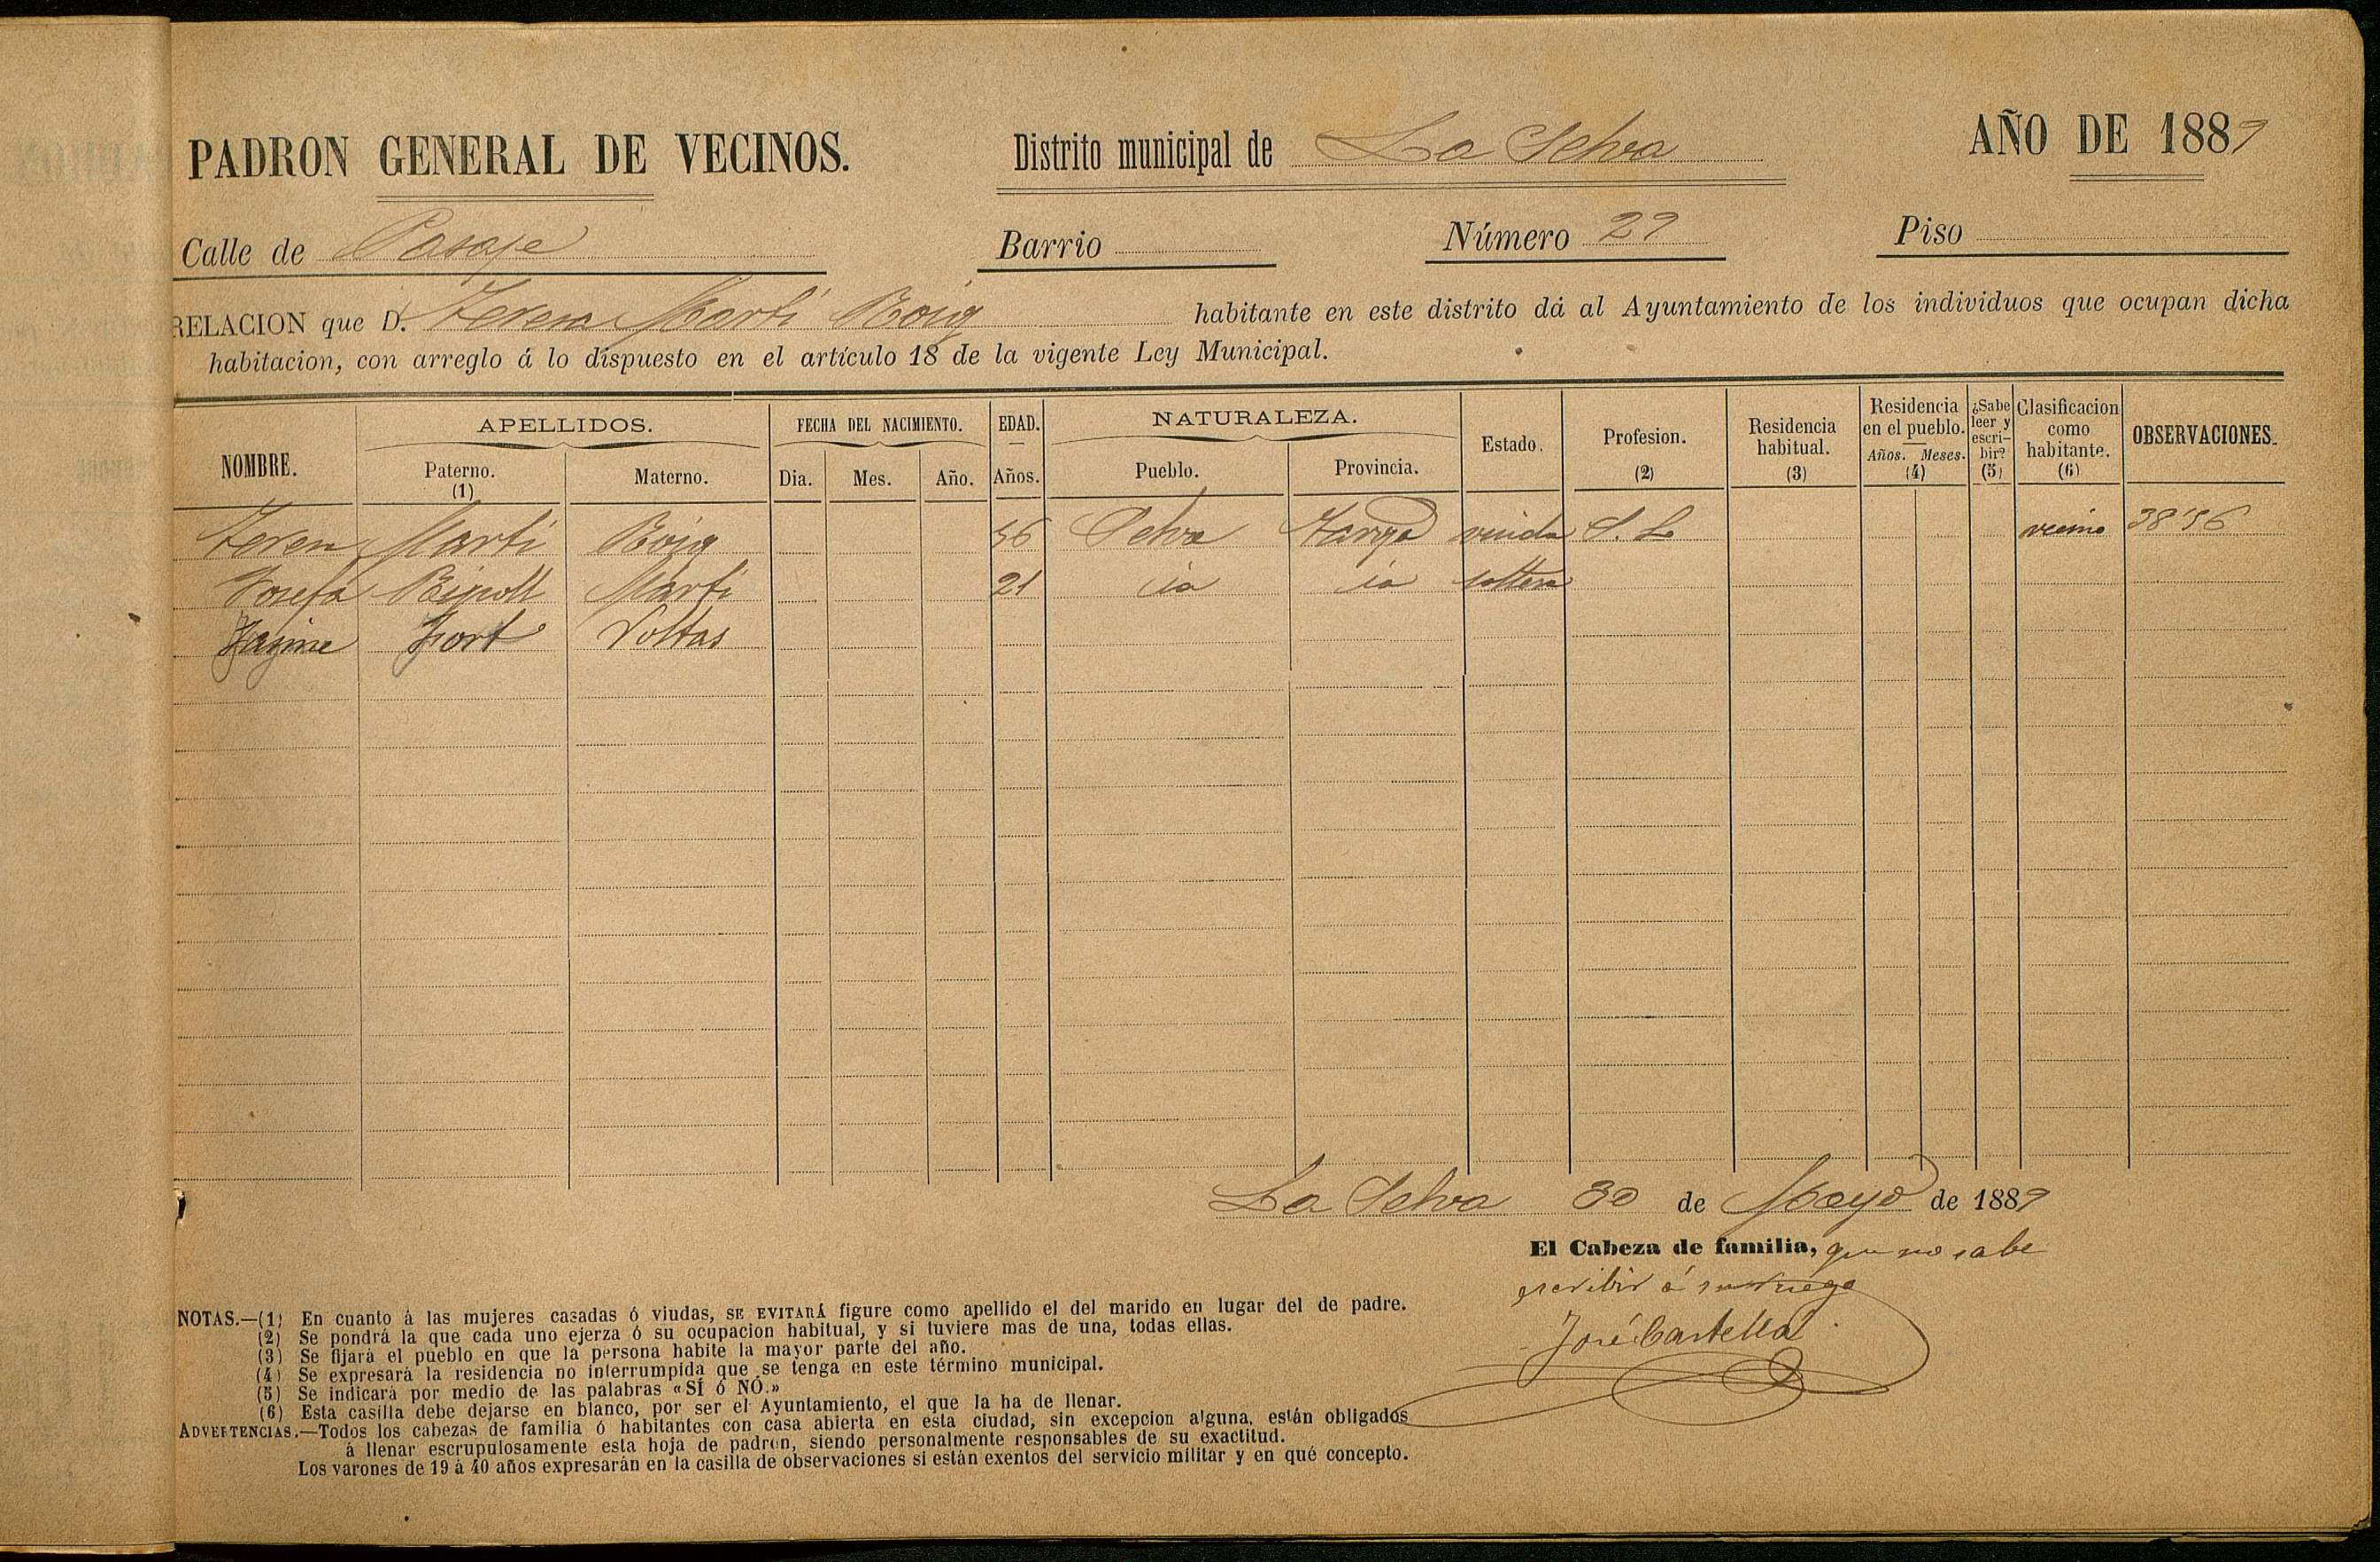 PADRON GENERAL DE VECINOS. Distrito municipal de La Selva AÑO DE 1889
Calle de Pasaje Barrio Número 29 Piso
RELACION que D. Teresa Marti Roig habitante en este distrito dá al Ayuntamiento de los individuos que ocupan dicha
habitacion, con arreglo á lo dispuesto en el artículo 18 de la vigente Ley Municipal.
NOMBRE. APELLIDOS. FECHA DEL NACIMIENTO. EDAD. NATURALEZA. Estado. Profesion. (2) Residencia habitual. (3) Residencia en el pueblo. Años. Meses. (4) ¿Sabe leer y escribir? (5) Clasificacion como habitante. (6) OBSERVACIONES.
Paterno. (1) Materno. Dia. Mes. Año. Años. Pueblo. Provincia.
Teresa Marti Roig 56 Selva Tarrga viuda S. L. vecino 38'56
Josefa Ripoll Marti 21 id id soltera
Jayme Fort Voltas
La Selva 30 de Mayo de 1889
El Cabeza de familia, que no sabe
escribir á su ruego
José Castellá
NOTAS.—(1) En cuanto á las mujeres casadas ó viudas, SE EVITARÁ figure como apellido el del marido en lugar del de padre.
(2) Se pondrá la que cada uno ejerza ó su ocupacion habitual, y si tuviere mas de una, todas ellas.
(3) Se fijará el pueblo en que la persona habite la mayor parte del año.
(4) Se expresará la residencia no interrumpida que se tenga en este término municipal.
(5) Se indicará por medio de las palabras «SÍ ó NÓ.»
(6) Esta casilla debe dejarse en blanco, por ser el Ayuntamiento, el que la ha de llenar.
ADVERTENCIAS.—Todos los cabezas de familia ó habitantes con casa abierta en esta ciudad, sin excepcion alguna, están obligados
á llenar escrupulosamente esta hoja de padron, siendo personalmente responsables de su exactitud.
Los varones de 19 á 40 años expresarán en la casilla de observaciones si están exentos del servicio militar y en qué concepto.